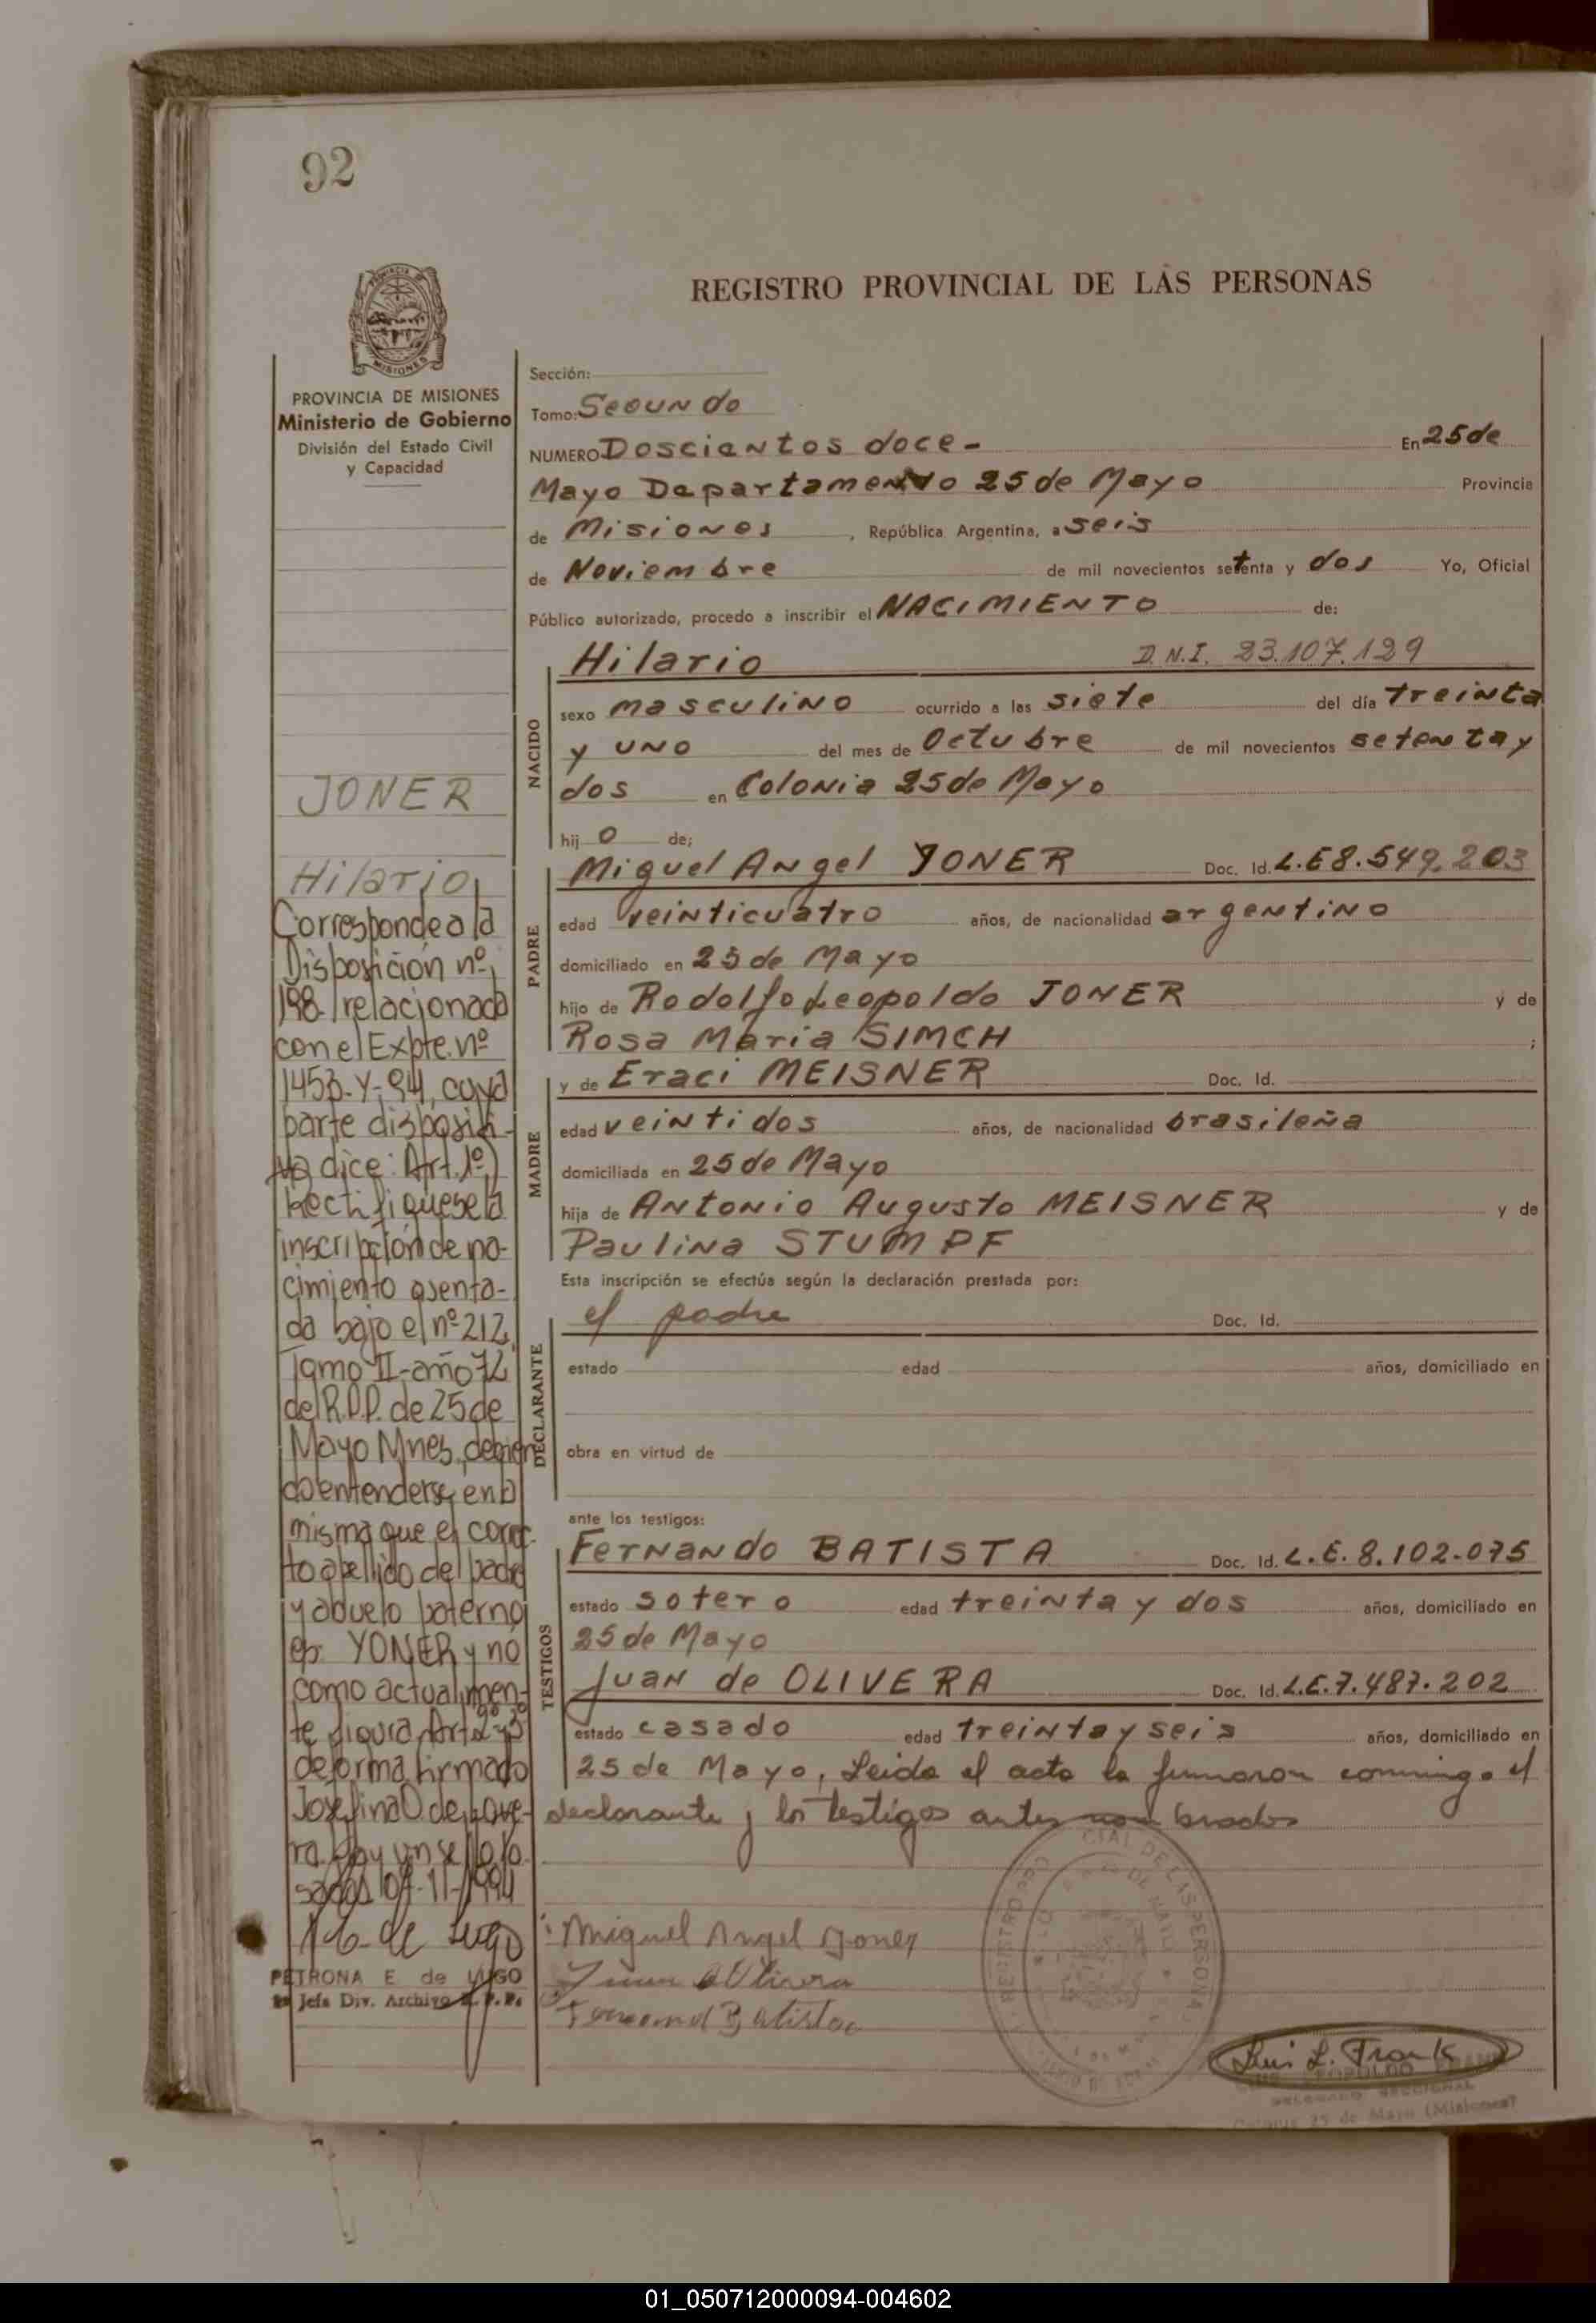 92
REGISTRO PROVINCIAL DE LAS PERSONAS
MISIONES
PROVINCIA DE MISIONES
Ministerio de Gobierno
División del Estado Civil
y Capacidad
JONER
Hilario
Corresponde a la
Disposición nº
198 relacionada
con el Expte. nº
1453-Y-94, cuya
parte dispositi-
va dice: Art. 1º)
Rectifiquese la
inscripción de na-
cimiento asenta-
da bajo el nº 212,
Tomo II-año 72
del R.P.P. de 25 de
Mayo Mnes, debien
do entenderse en la
misma que el correc-
to apellido del padre
y abuelo paterno
es: YONER y no
como actualmen-
te figura. Art. 2º y 3º
de forma. firmado
Josefina O. de
ra. Hay un sello.
Posadas 04-11-1994
PETRONA E de LUGO
Jefa Div. Archivo R.P.P.
Sección:
Tomo: Segundo
NUMERO Doscientos doce - En 25 de
Mayo Departamento 25 de Mayo Provincia
de Misiones, República Argentina, a seis
de Noviembre de mil novecientos setenta y dos Yo, Oficial
Público autorizado, procedo a inscribir el NACIMIENTO de:
NACIDO
Hilario D.N.I. 23.107.129
sexo masculino ocurrido a las siete del día treinta
y uno del mes de Octubre de mil novecientos setenta y
dos en Colonia 25 de Mayo
hij o de;
PADRE
Miguel Angel YONER Doc. Id. L.E 8.549.203
edad veinticuatro años, de nacionalidad argentino
domiciliado en 25 de Mayo
hijo de Rodolfo Leopoldo JONER y de
Rosa Maria SIMCH ;
MADRE
y de Eraci MEISNER Doc. Id.
edad veintidos años, de nacionalidad brasileña
domiciliada en 25 de Mayo
hija de Antonio Augusto MEISNER y de
Paulina STUMPF
Esta inscripción se efectúa según la declaración prestada por:
DECLARANTE
el padre Doc. Id.
estado edad años, domiciliado en
obra en virtud de
ante los testigos:
TESTIGOS
Fernando BATISTA Doc. Id. L.E. 8.102.075
estado sotero edad treinta y dos años, domiciliado en
25 de Mayo
Juan de OLIVERA Doc. Id. L.E. 7.487.202
estado casado edad treinta y seis años, domiciliado en
25 de Mayo, Leida el acta la firmaron conmigo el
declarante y los testigos antes nombrados
Miguel Angel Joner
Juan d Olivera
Fernand Batista
REGISTRO PROVINCIAL DE LAS PERSONAS
Luis L. Frank
LUIS LEOPOLDO FRANK
DELEGADO SECCIONAL
Colonia 25 de Mayo (Misiones)
01_050712000094-004602